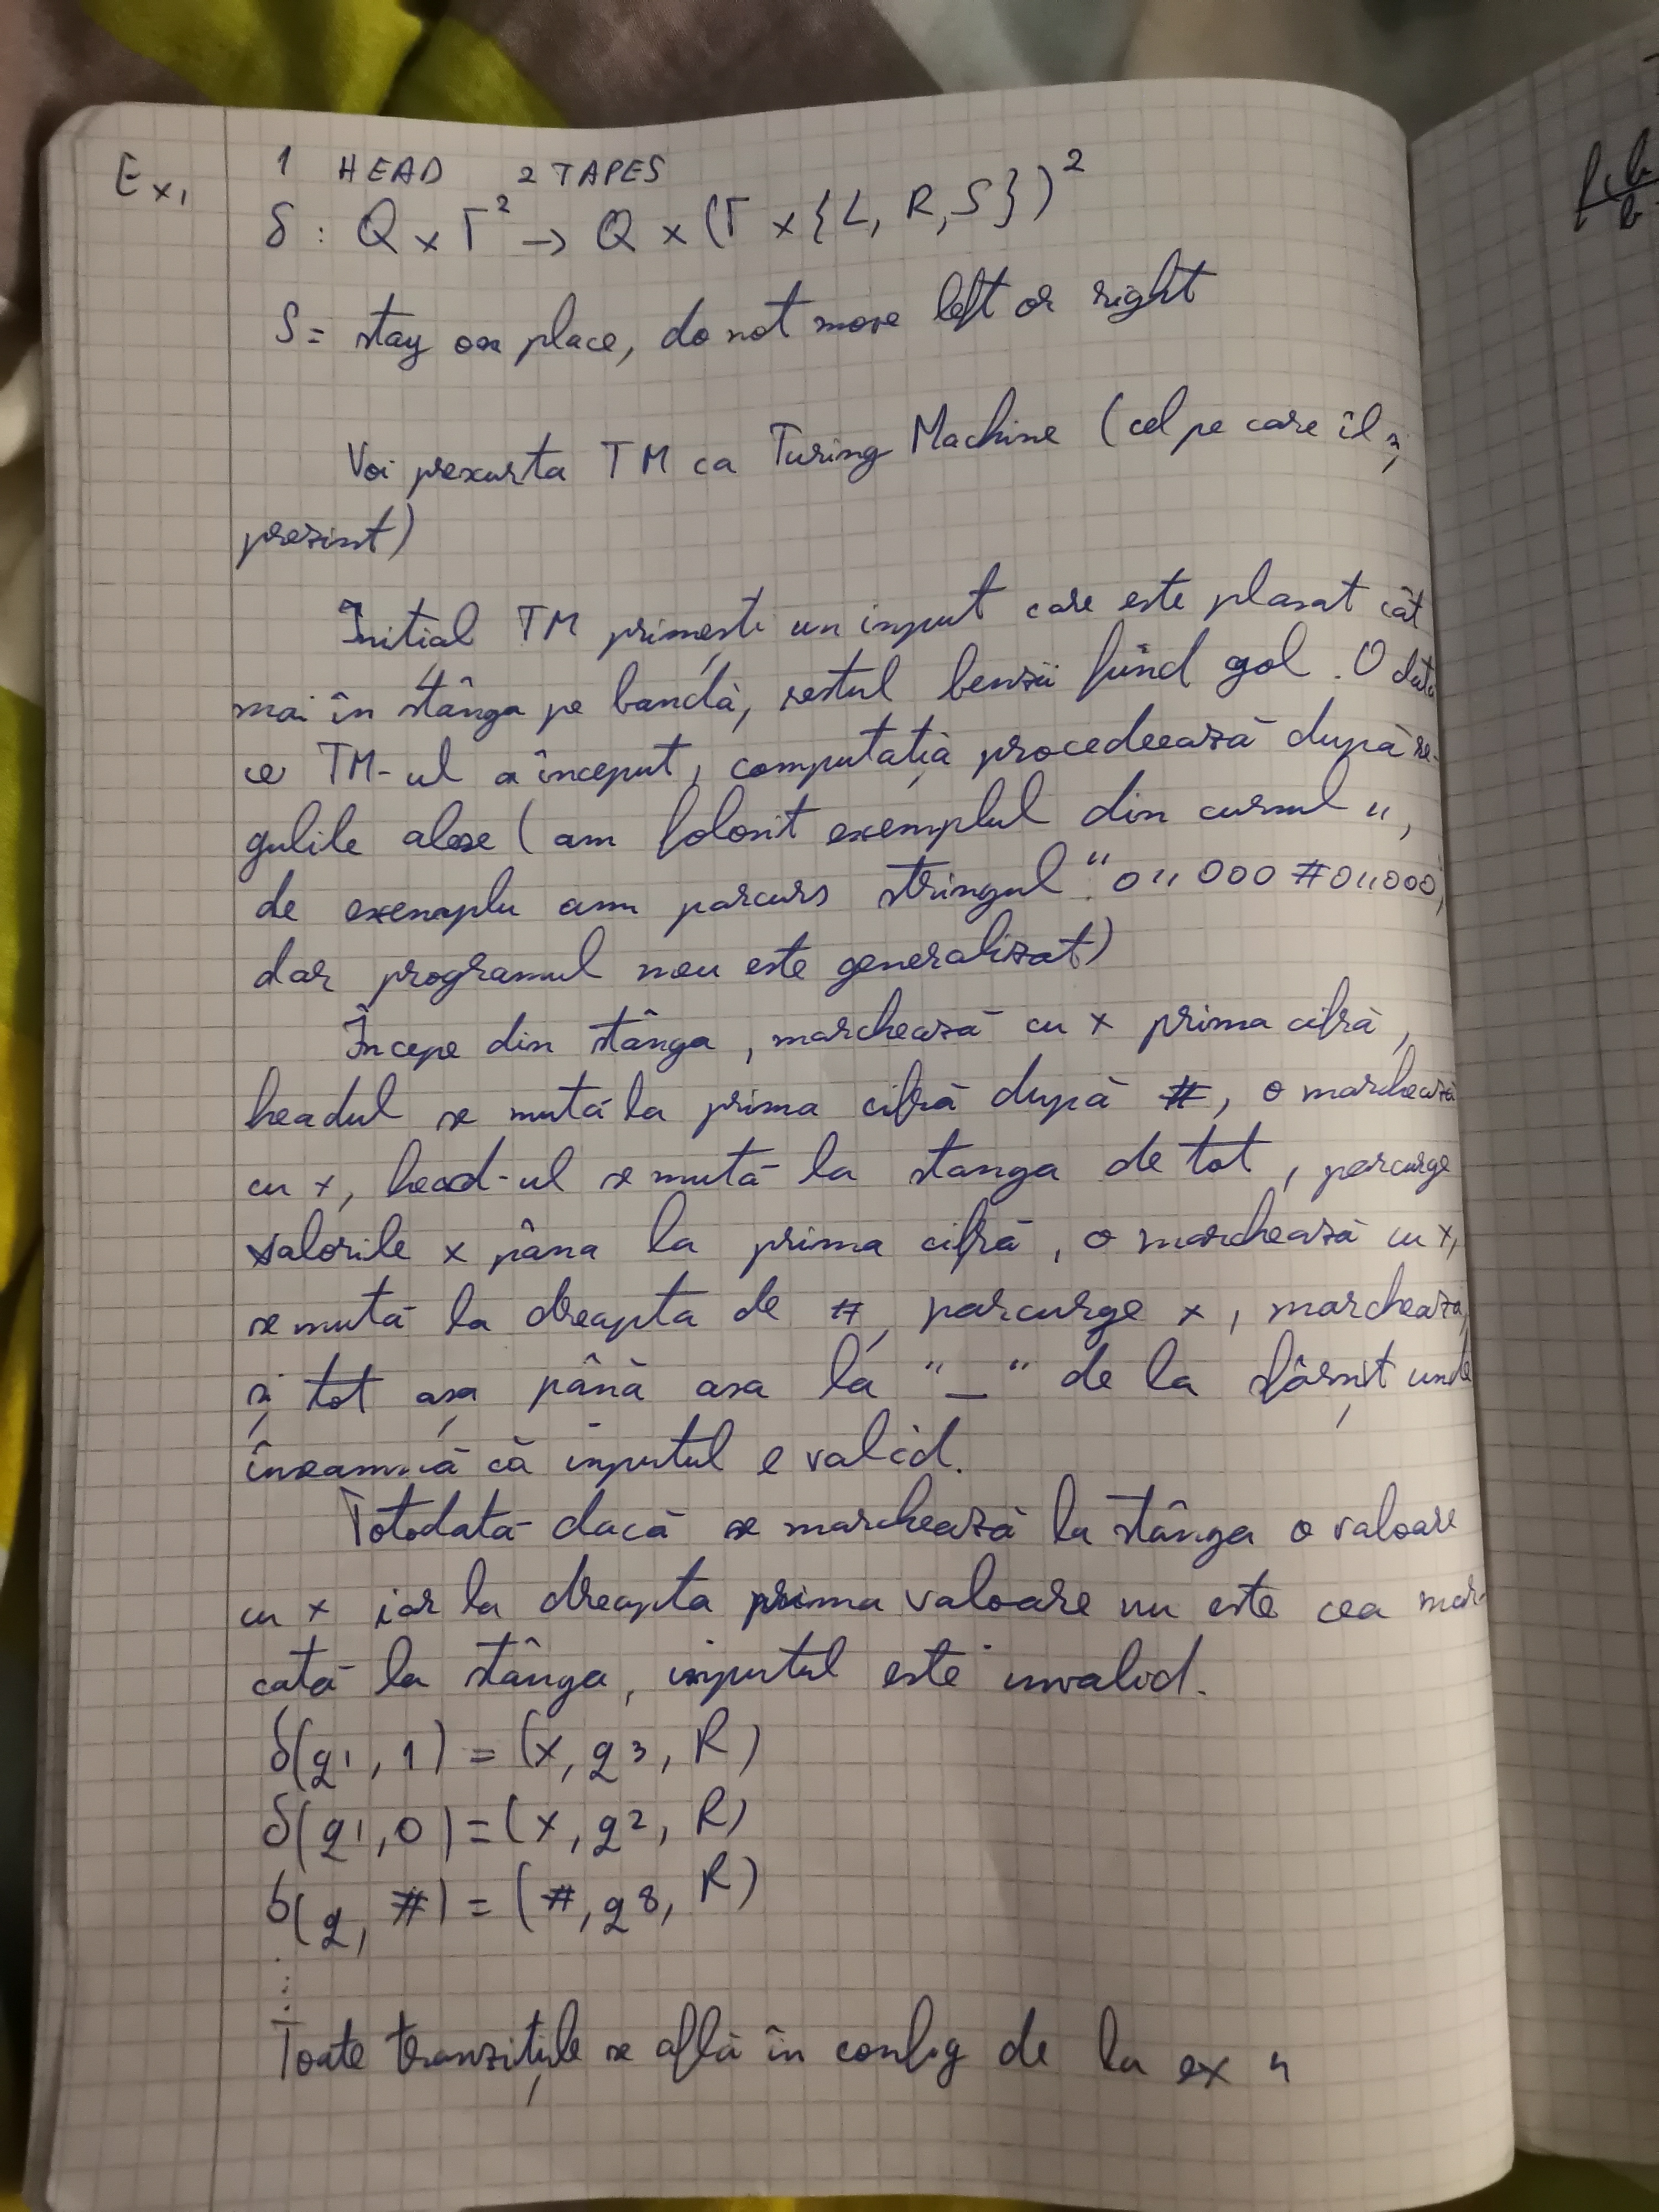 Ex1
1 HEAD 2 TAPES
δ: Q × Γ² → Q × (Γ × {L, R, S})²
S = stay on place, do not move left or right
Voi prexurta TM ca Turing Machine (cel pe care îl
prezint)
Inițial TM primește un input care este plasat cât
mai în stânga pe bandă, restul benzii fiind gol. O dată
ce TM-ul a început, computația procedeează după re-
gulile alese (am folosit exemplul din cursul 11,
de exemplu am parcurs stringul "011000#011000,
dar programul meu este generalizat)
Începe din stânga, marchează cu x prima cifră,
headul se mută la prima cifră după #, o marchează
cu x, head-ul se mută la stanga de tot, parcurge
valorile x pâna la prima cifră, o marchează cu x,
se mută la dreapta de #, parcurge x, marchează,
și tot așa până asa la "_" de la sfârșit unde
înseamnă că inputul e valid.
Totodată dacă se marchează la stânga o valoare
cu x iar la dreapta prima valoare nu este cea mar-
cată la stânga, inputul este invalid.
δ(q1, 1) = (x, q3, R)
δ(q1, 0) = (x, q2, R)
δ(q, #) = (#, q8, R)
⋮
Toate tranzițiile se află în config de la ex